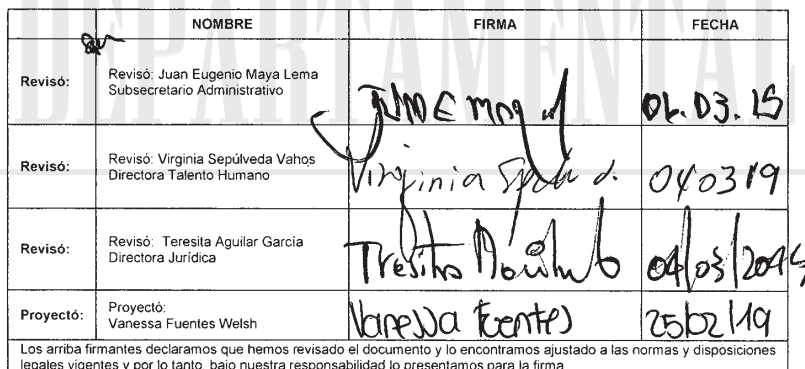 DEPARTAMENTAL
NOMBRE FIRMA FECHA
Revisó: Revisó: Juan Eugenio Maya Lema
Subsecretario Administrativo
Revisó: Revisó: Virginia Sepúlveda Vahos
Directora Talento Humano
Virginia 040319
Revisó: Revisó: Teresita Aguilar García
Directora Jurídica
04/03/2019
Proyectó: Proyectó:
Vanessa Fuentes Welsh
Vanessa Fuentes 25/02/19
Los arriba firmantes declaramos que hemos revisado el documento y lo encontramos ajustado a las normas y disposiciones
legales vigentes y por lo tanto, bajo nuestra responsabilidad lo presentamos para la firma